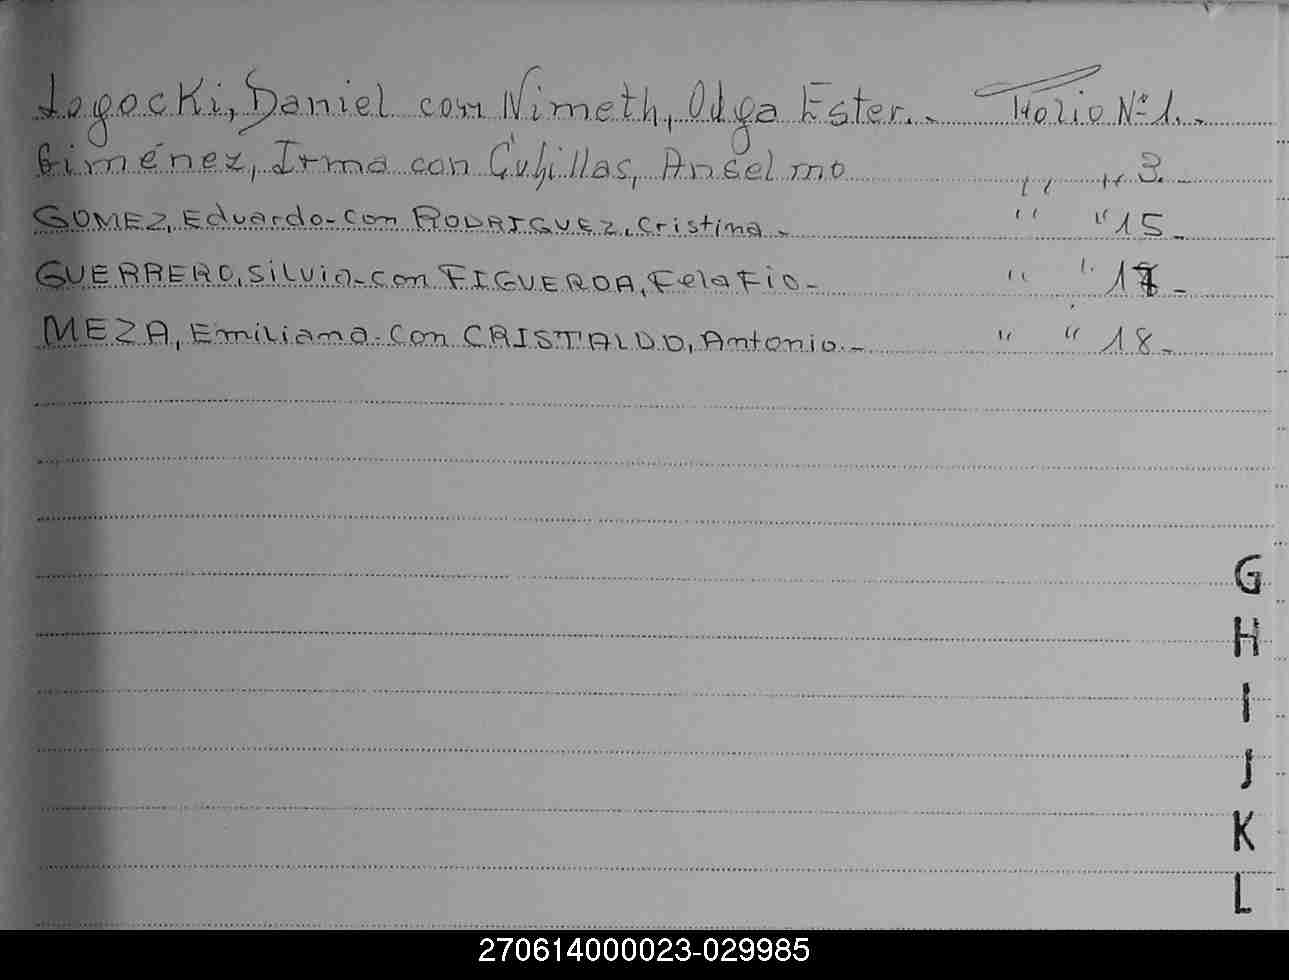 Logocki, Daniel con Nimeth, Olga Ester.- Folio Nº 1.-
Giménez, Irma con Cubillas, Anselmo " " 3.-
GOMEZ, Eduardo-Con RODRIGUEZ, Cristina.- " " 15-
GUERRERO, Silvia-con FIGUEROA, - " " -
MEZA, Emiliana-Con CRISTALDO, Antonio.- " " 18-
G
H
I
J
K
L
270614000023-029985